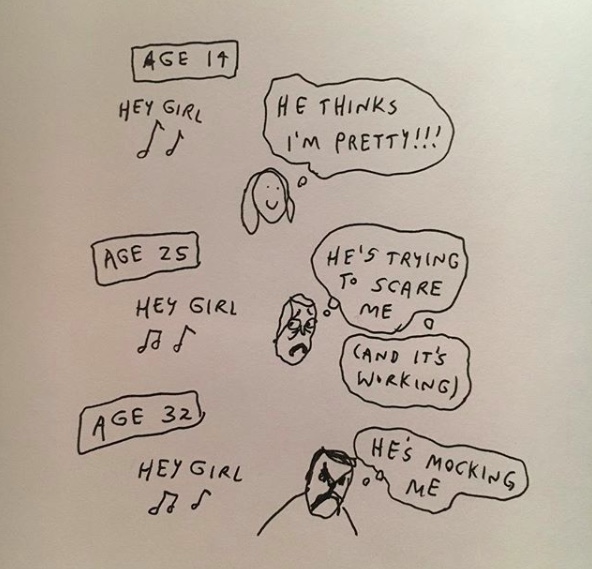 AGE 14
HEY GIRL
HE THINKS
I'M PRETTY!!!
AGE 25
HEY GIRL
HE'S TRYING
TO SCARE
ME
(AND IT'S
WORKING)
AGE 32
HEY GIRL
HE'S MOCKING
ME